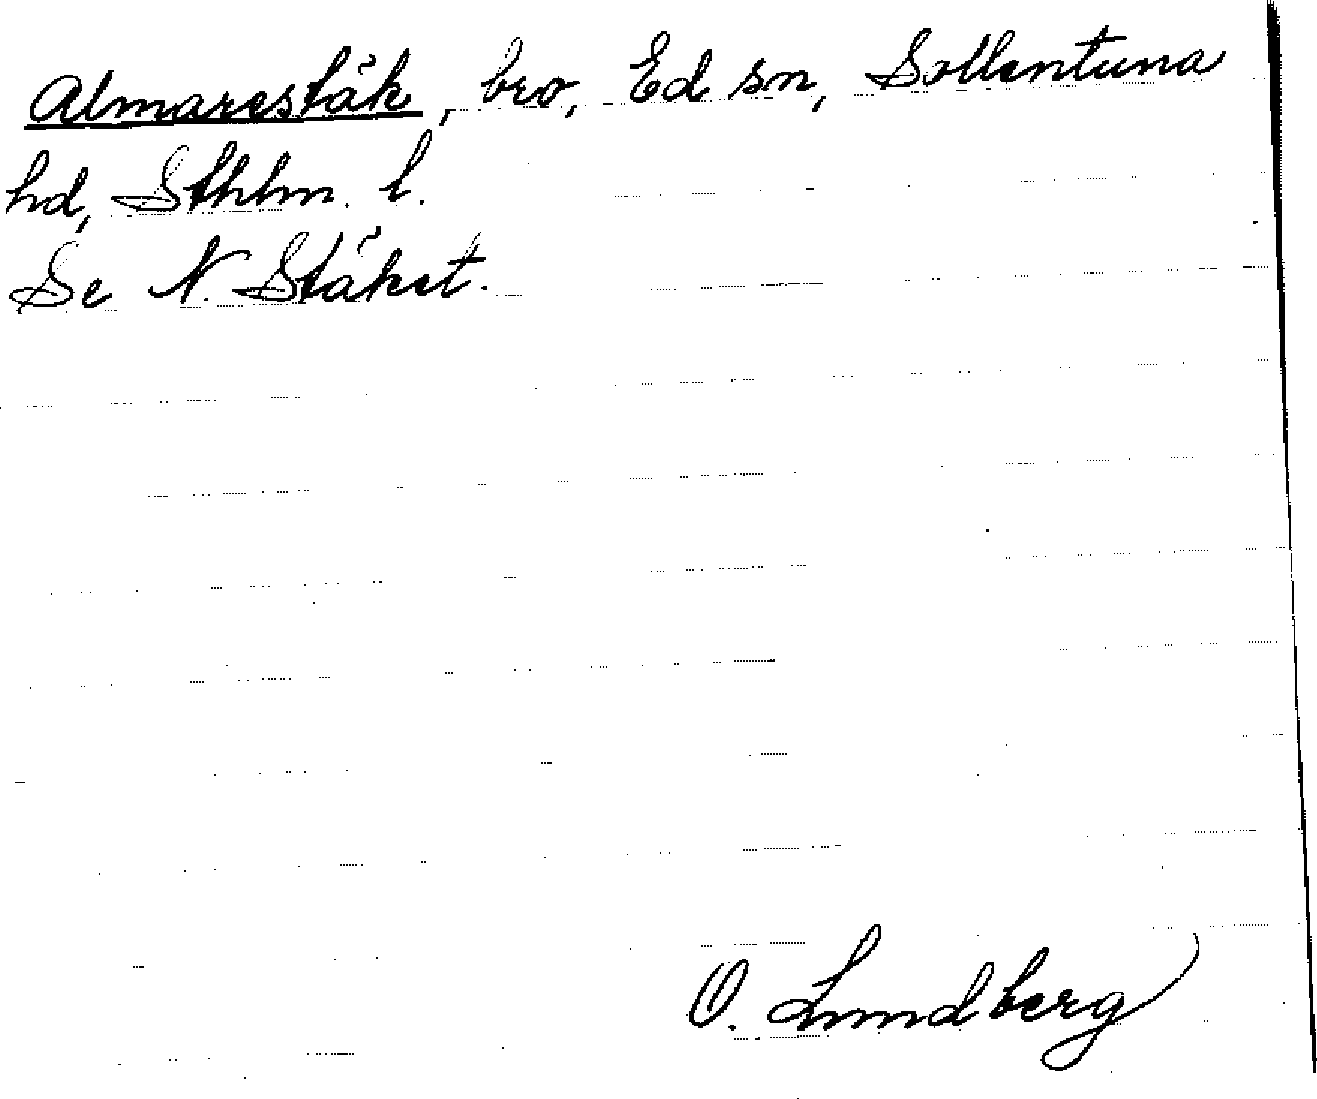 Almarestäk, bro, Ed sn, Sollentuna
hd, Sthlm. l.
Se N. Stäket.
O. Lundberg